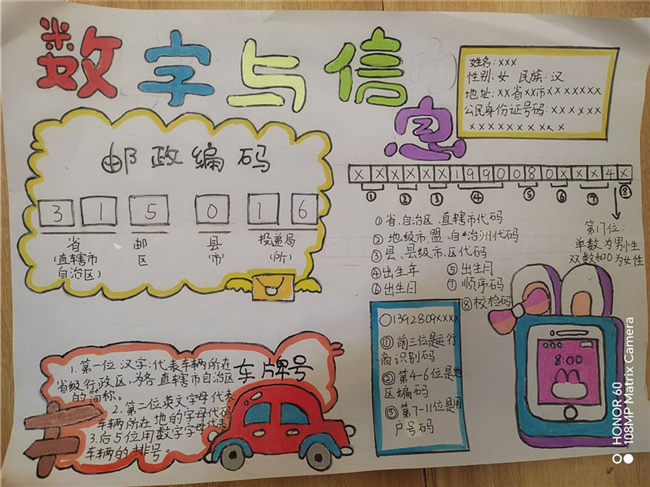 数字与信息
姓名:xxx
性别:女 民族:汉
地址:xx省xx市xxxxxxx
公民身份证号码:xxxxxx
xxxxxxxxx
邮政编码
3 1 5 0 1 6
省
(直辖市
自治区)
邮
区
县
(市)
投递局
(所)
x x x x x x 1 9 9 0 0 8 0 x x x 4 x
① ② ③ ④ ⑤ ⑥ ⑦ ⑧
①省、自治区、直辖市代码
②地级市、盟、自治州代码
③县、县级市、区代码
④出生年 ⑤出生月
⑥出生日 ⑦顺序码
⑧校检码
第17位:
单数为男性
双数和0为女性
1392809xxxx
①前三位是运行
商识别码
②第4-6位是地
区编码
③第7-11位是用
户号码
8:00
车牌号
1.第一位汉字:代表车辆所在
省级行政区,为各直辖市自治区
的简称。
2.第二位英文字母代表
车辆所在地的字母代码
3.后5位用数字字母代表
车辆的排号。
HONOR 60
108MP Matrix Camera